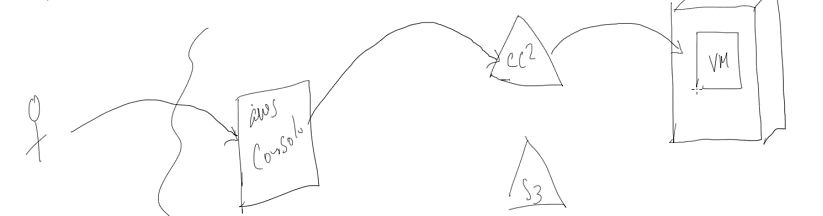 aws
Console
EC2
VM
S3